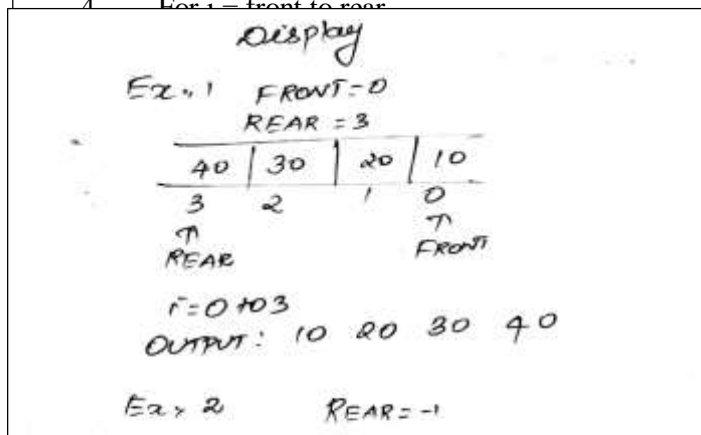 4. For i = front to rear
Display
Ex:1 FRONT=0
REAR=3
40 30 20 10
3 2 1 0
↑ ↑
REAR FRONT
i=0 to 3
OUTPUT: 10 20 30 40
Ex:2 REAR=-1